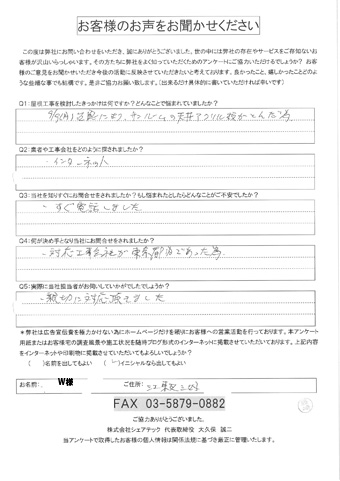 お客様のお声をお聞かせください
この度は弊社にお問い合わせをいただき、誠にありがとうございました。世の中には弊社の存在やサービスをご存知ないお
客様が沢山いらっしゃいます。その方たちに弊社をよく知っていただくためのアンケートにご協力いただけるでしょうか？ お客
様のご意見をお聞かせいただき今後の活動に反映させていただきたいと考えております。良かったこと、嬉しかったことどのよ
うな些細な事でも結構です。是非ご協力お願い致します。（出来るだけ具体的に書いていただければ幸いです）
Q1：屋根工事を検討したきっかけは何ですか？どんなことで悩まれていましたか？
強風により、サンルームの天井アクリル板がとんだ為
Q2：業者や工事会社をどのように探されましたか？
・インターネット
Q3：当社を知りすぐにお問合せをされましたか？もし悩まれたとしたらどんなことがご不安でしたか？
・すぐ電話しました
Q4：何が決め手となり当社にお問合せをされましたか？
・対応工事会社が東京都内であった為
Q5：実際に当社担当者がお伺いしていかがでしたでしょうか？
・親切に対応頂きました
＊弊社は広告宣伝費を極力かけない為にホームページだけを頼りにお客様への営業活動を行っております。本アンケート
用紙またはお客様宅の調査風景や施工状況を随時ブログ形式のインターネットに掲載させていただいております。上記内容
をインターネットや印刷物に掲載させていただいてもよろしいでしょうか？
（　）名前を出してもよい　（　）イニシャルなら出してもよい
お名前： W様 ご住所：
FAX 03-5879-0882
ご協力ありがとうございました。
株式会社シェアテック 代表取締役 大久保 誠二
当アンケートで取得したお客様の個人情報は関係法規に基づき厳正に管理いたします。